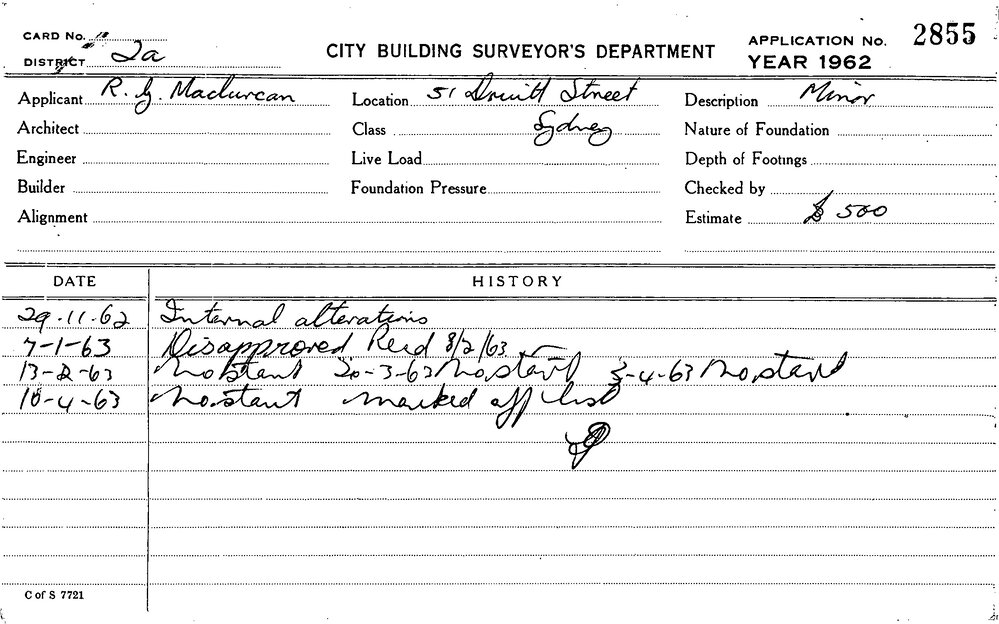 CARD No.
DISTRICT 2a
CITY BUILDING SURVEYOR'S DEPARTMENT
APPLICATION No. 2855
YEAR 1962
Applicant R. G. Maclurcan
Location 51 Druitt Street
Description Minor
Architect
Class Sydney
Nature of Foundation
Engineer
Live Load
Depth of Footings
Builder
Foundation Pressure
Checked by
Alignment
Estimate £ 500
DATE HISTORY
29.11.62 Internal alterations
7-1-63 Disapproved 8/2/63
13-2-63 No start 20-3-63 No start 3-4-63 No start
10-4-63 No start marked off list
C of S 7721